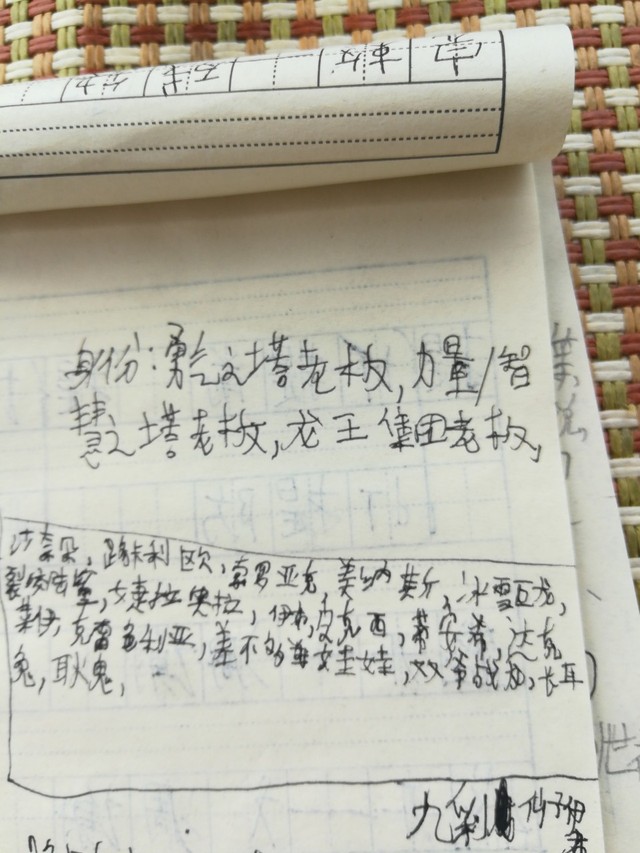 身份:勇气之塔老板,力量/智
慧之塔老板,龙王集团老板,
沙奈朵,路卡利欧,索罗亚克,美纳斯,冰雪巨龙,
裂咬陆鲨,捷拉奥拉,伊布,皮克西,蒂安希,达克
莱伊,克雷色利亚,差不多娃娃,双斧战龙,长耳
兔,耿鬼,
九
仙子伊